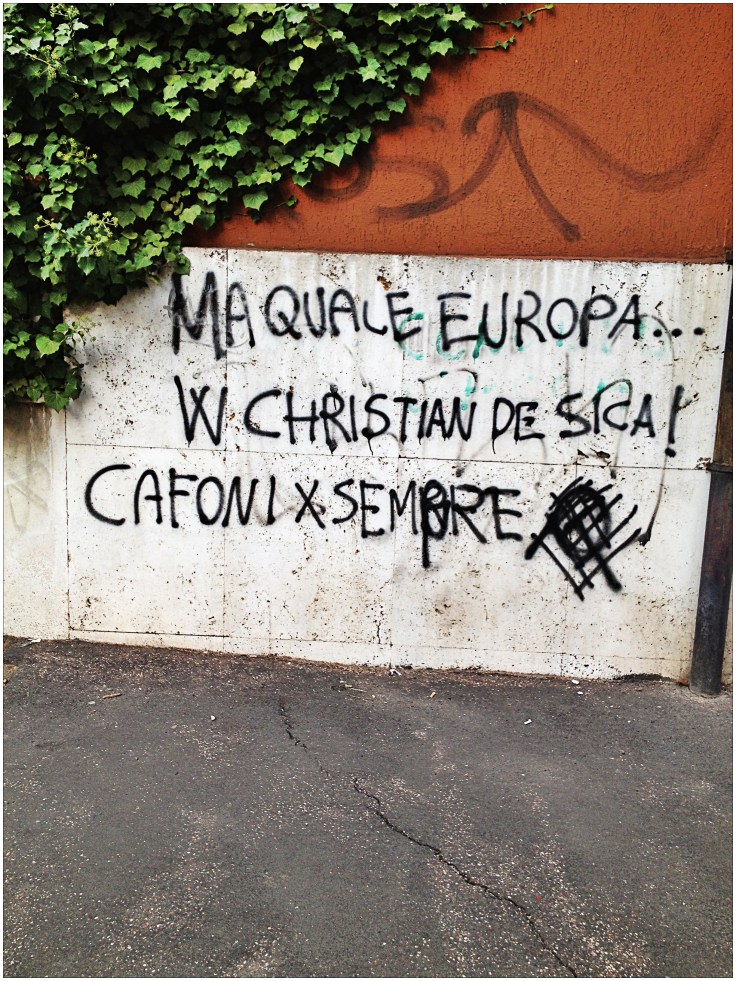 MA QUALE EUROPA...
W CHRISTIAN DE SICA!
CAFONI X SEMPRE